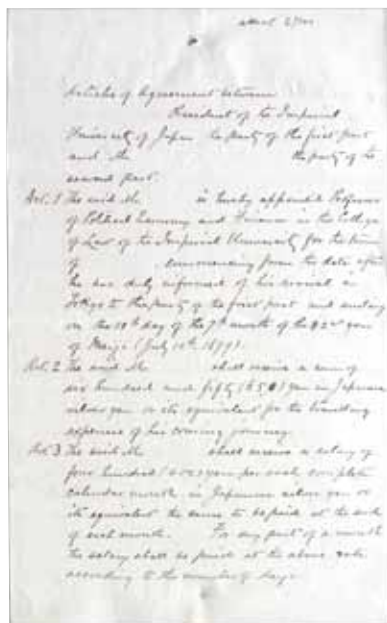 Articles of Agreement between
President of the Imperial
University of Japan the party of the first part
and Mr. the party of the
second part.
Art. 1 The said Mr. is hereby appointed Professor
of Political Economy and Finance in the College
of Law of the Imperial University for the term
of commencing from the date after
he has duly informed of his arrival in
Tokyo to the party of the first part and ending
on the 10th day of the 7th month of the 32nd year
of Meiji (July 10th 1899).
Art. 2 The said Mr. shall receive a sum of
six hundred and fifty (650) yen in Japanese
silver yen or its equivalent for the travelling
expenses of his coming journey.
Art. 3 The said Mr. shall receive a salary of
four hundred (400) yen per each complete
calendar month in Japanese silver yen or
its equivalent the same to be paid at the end
of each month. For any part of a month
the salary shall be paid at the above rate
according to the number of days.